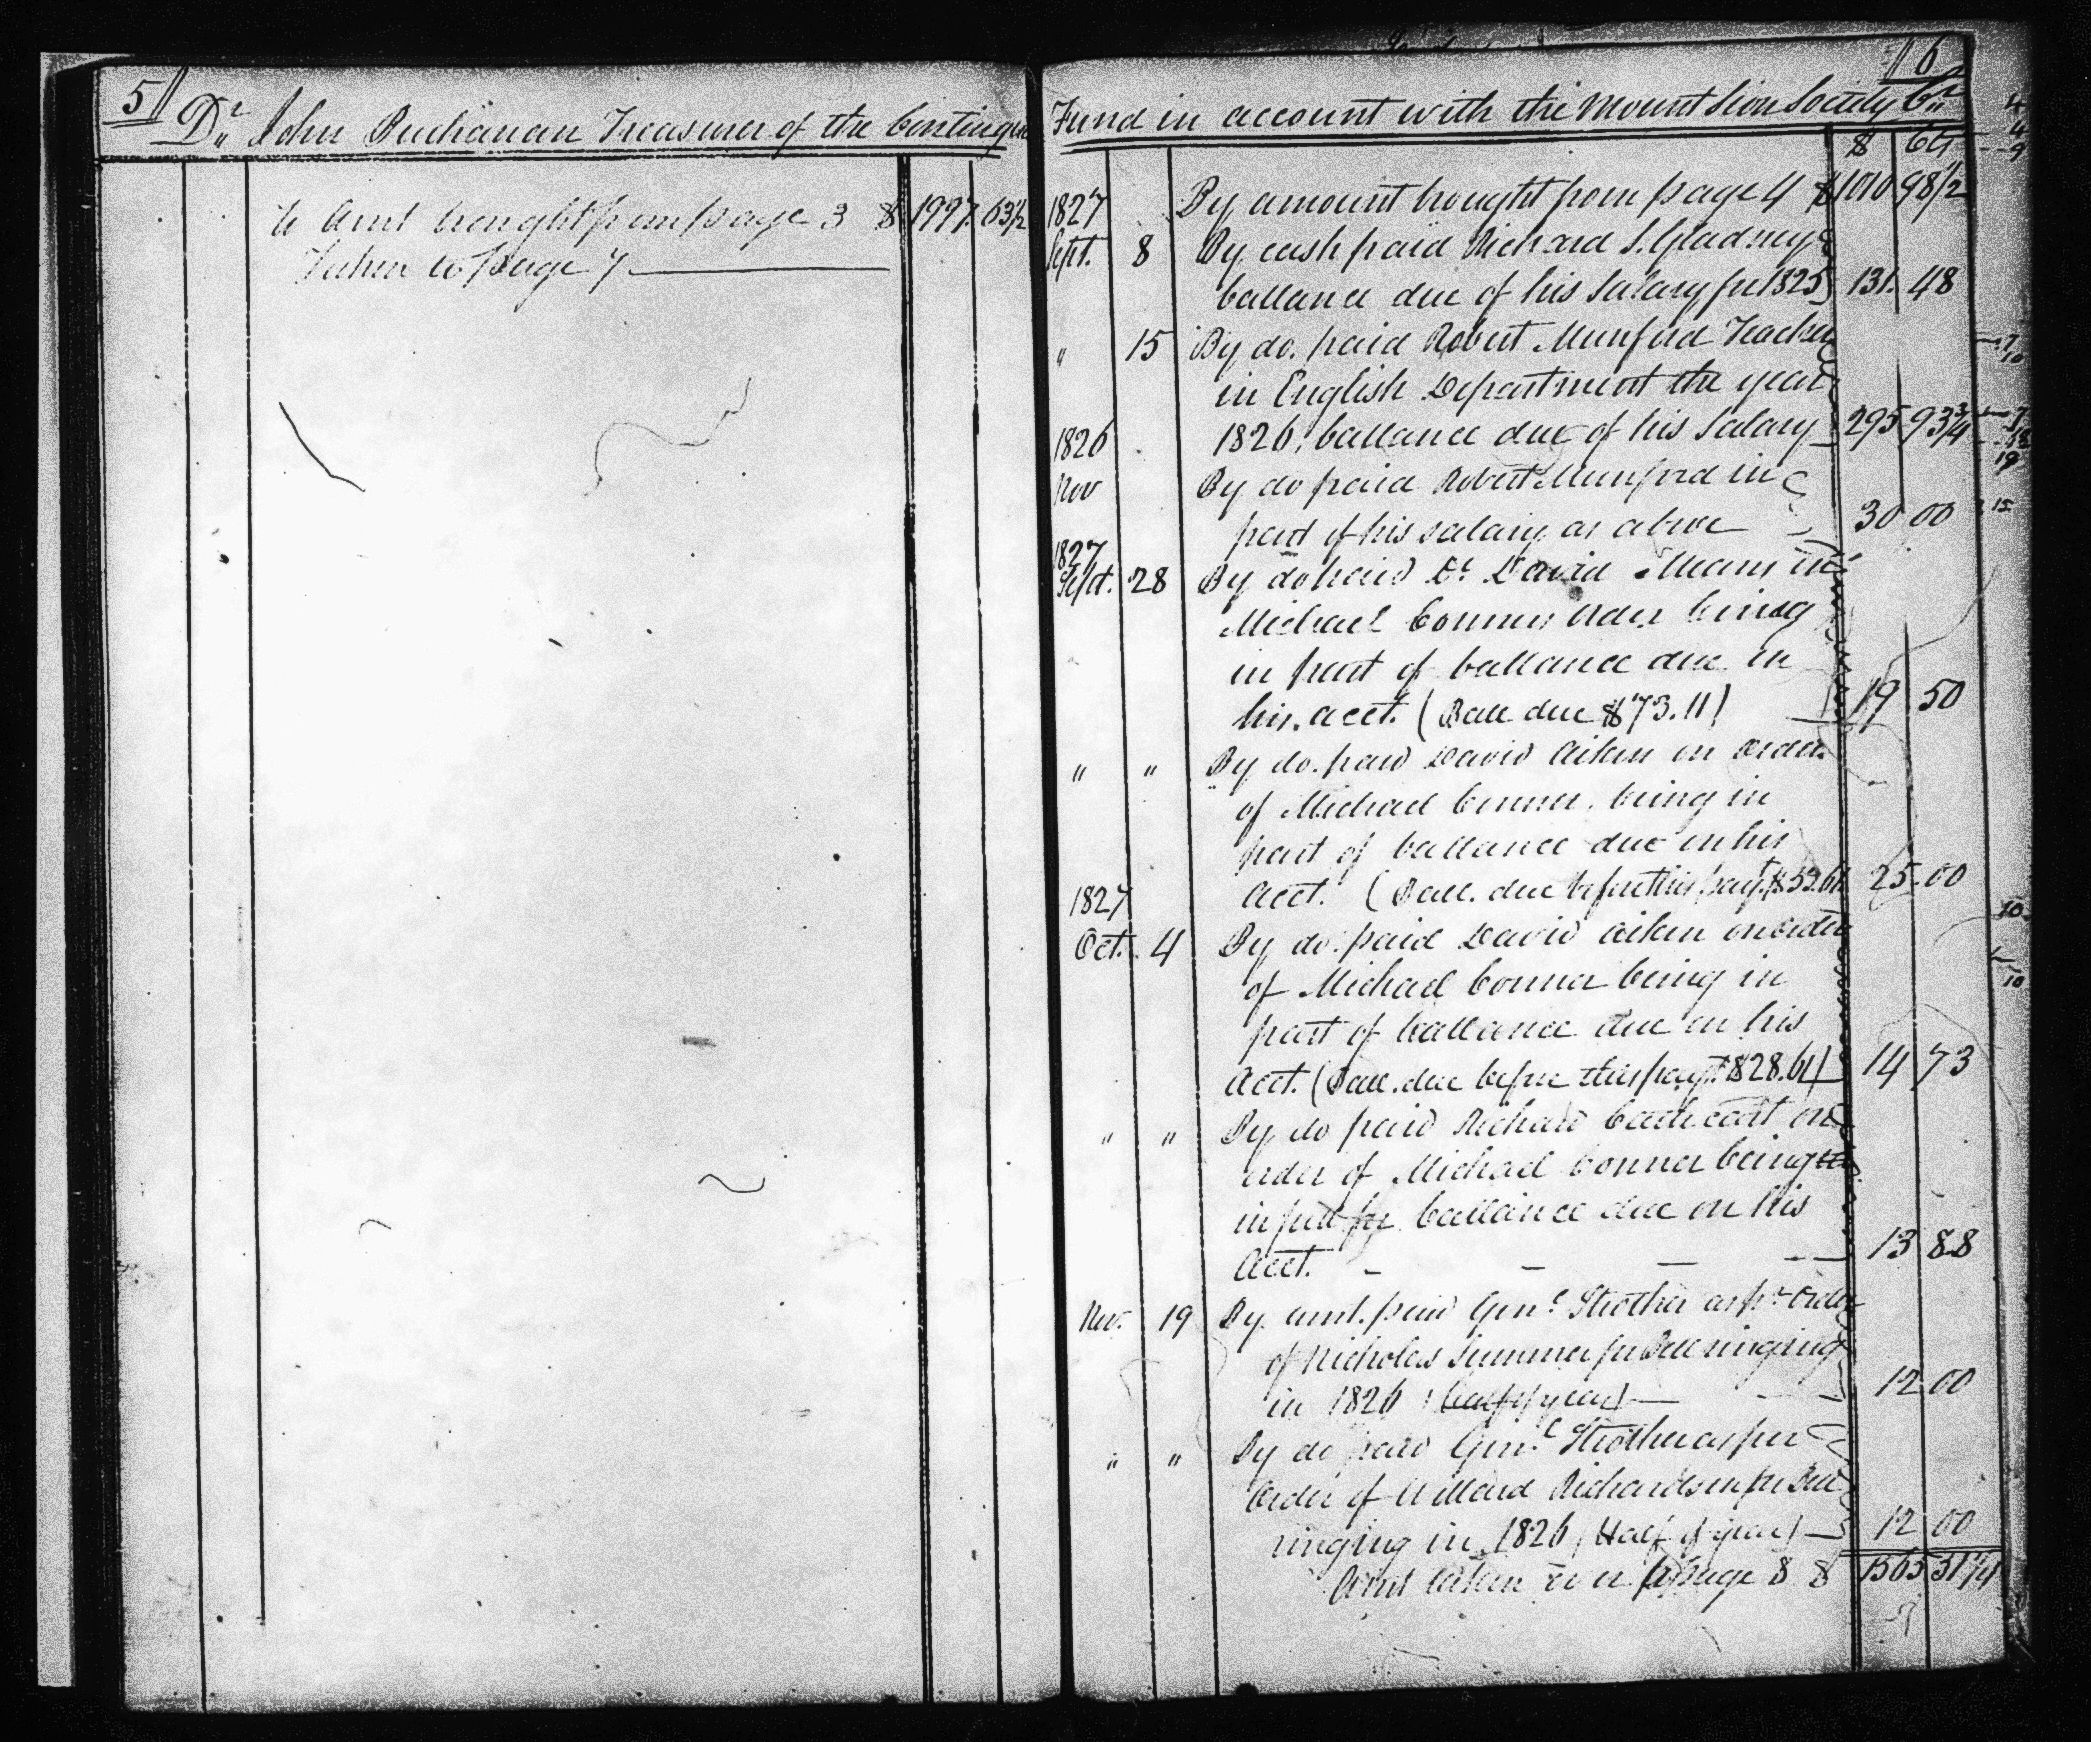 5
Dr John Buchanan Treasurer of the Contingent
To Amt brought from page 3 $ 1997. 63½
Taken to Page 7
6
Fund in account with the Mount Sion Society Cr
$ Cts
1827 By amount brought from page 4 $ 1010 98½
Sept. 8 By cash paid Richard S. Gladney
ballance due of his Salary for 1825 131. 48
" 15 By do. paid Robert Munford Teacher
in English Department the year
1826 1826, ballance due of his Salary 295 93¾
Nov By do paid Robert Munford in
part of his salary as above 30 00
1827
Sept. 28 By do paid Dr David Means on
Michael Conners Order being
in part of ballance due on
his acct. (Ball due $73.11) 19 50
" " By do. paid David Aiken on order
of Michael Conner. being in
part of ballance due on his
1827 acct. (Ball. due before this payt. $53.61 25.00
Oct. 4 By do. paid David Aiken on order
of Michael Conner being in
part of ballance due on his
Acct. (Ball. due before this payt. $28.61) 14 73
" " By do paid Richard Cathcart on
order of Michael Conner being
in part for ballance due on his
Acct. 13 88
Nov. 19 By amt. paid Genl Strother as pr order
of Nicholas Summer for Bell ringing
in 1826 (half year) 12 00
" " By do paid Genl Strother as per
Order of Willard Richardson for Bell
ringing in 1826 (Half year) 12 00
Amt taken over to Page 8 $ 1565 51¼